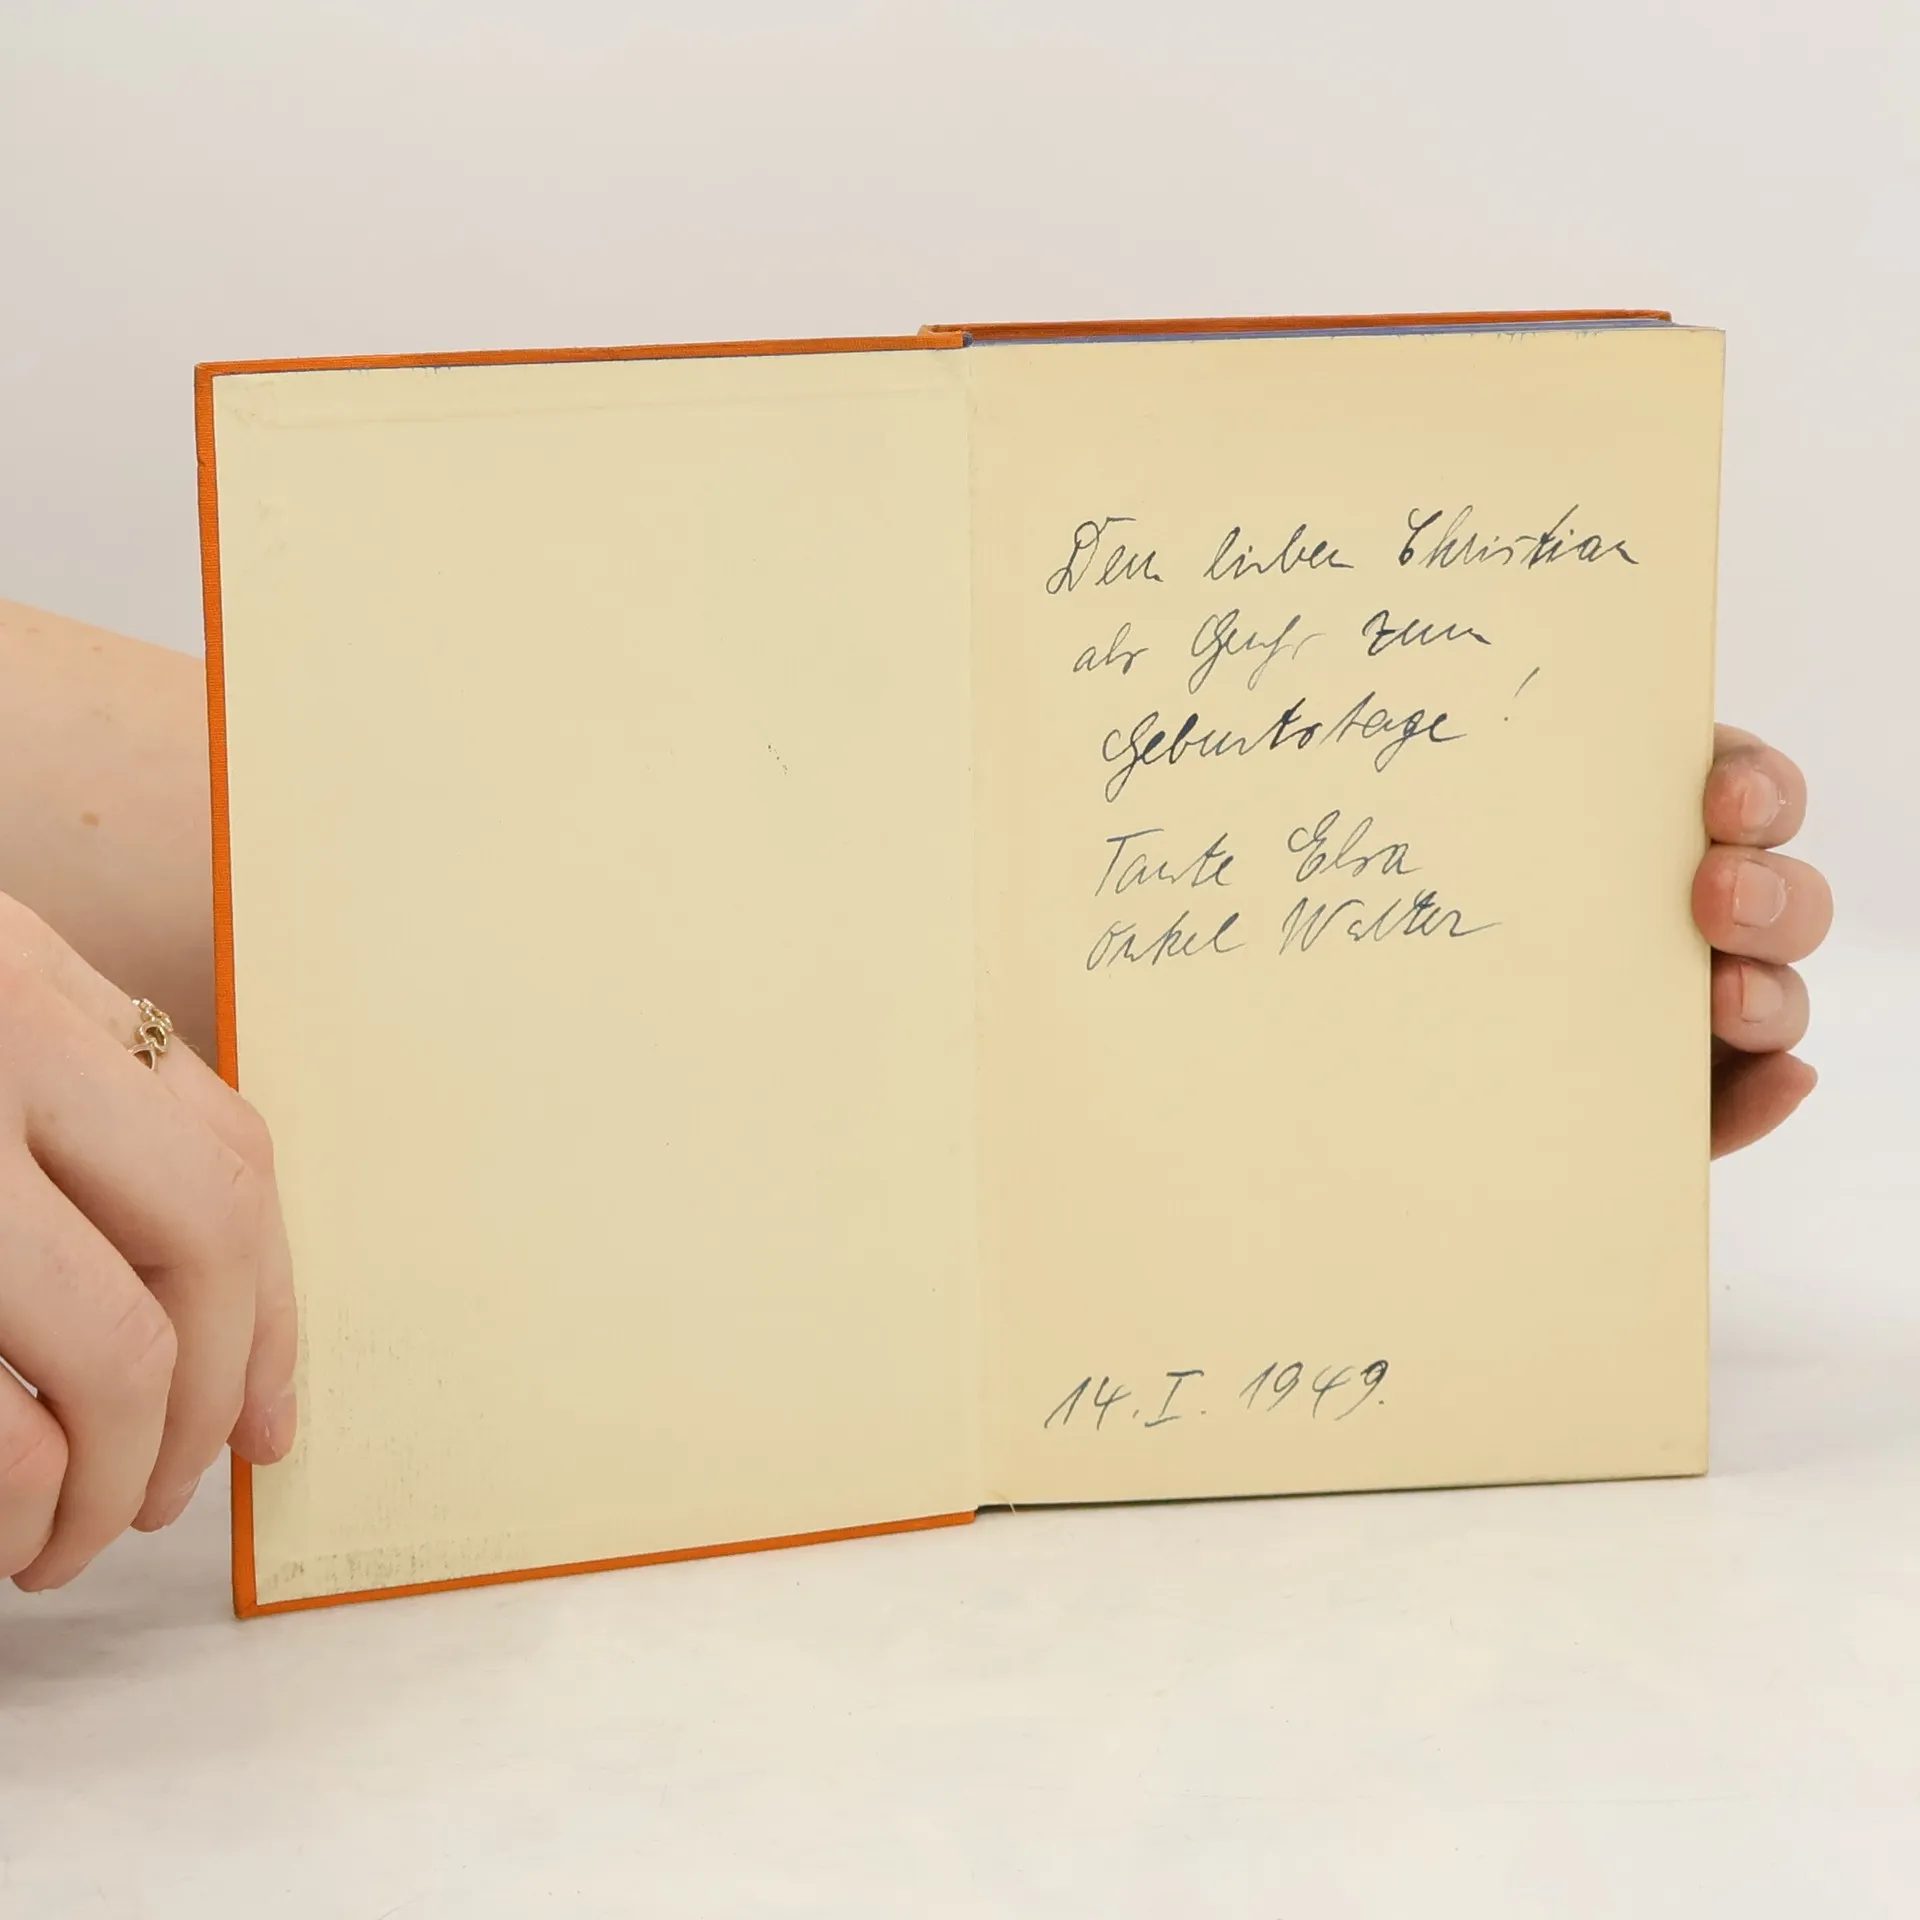 Dem lieben Christian
als Gruß zum
Geburtstage!
Tante Elsa
Onkel Walter
14.I.1949.